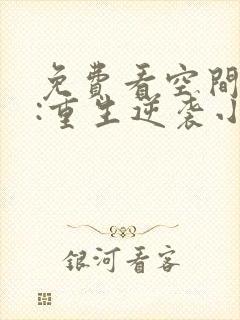 免費看空間
:重生逆袭小
銀河看客